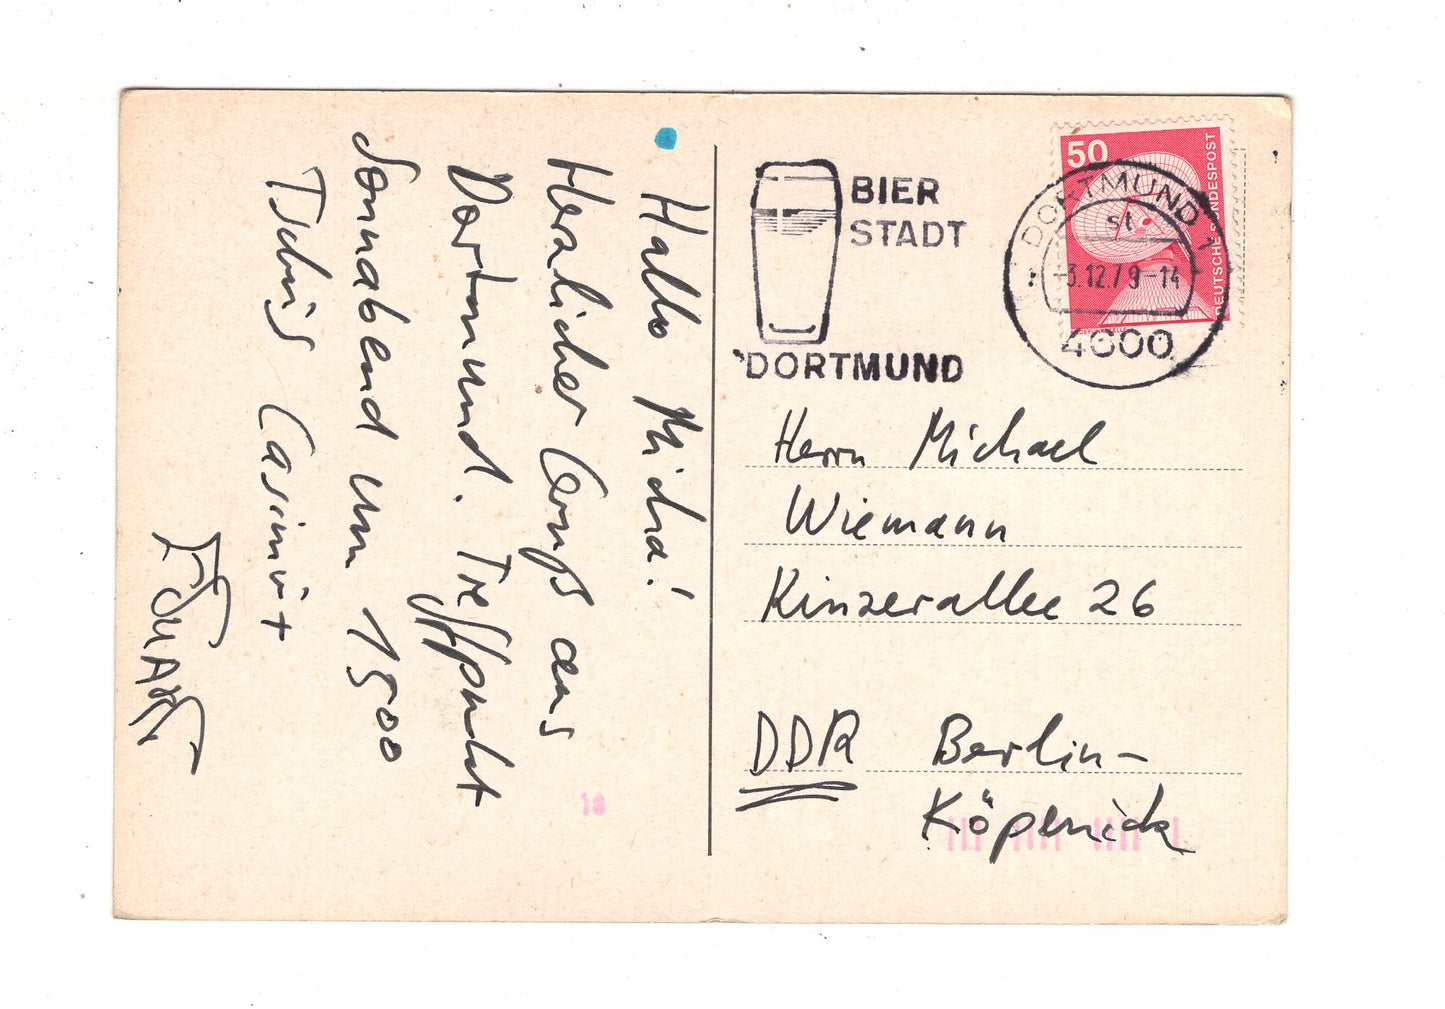 Hallo Micha!
Herzlicher Gruß aus
Dortmund. Treffpunkt
Sonnabend um 1500
Tschüß Casimir
BIER
STADT
DORTMUND
50
DEUTSCHE BUNDESPOST
DORTMUND 1
st
-3.12.79-14
4600
Herrn Michael
Wiemann
Kinzerallee 26
DDR Berlin-
Köpenick
18